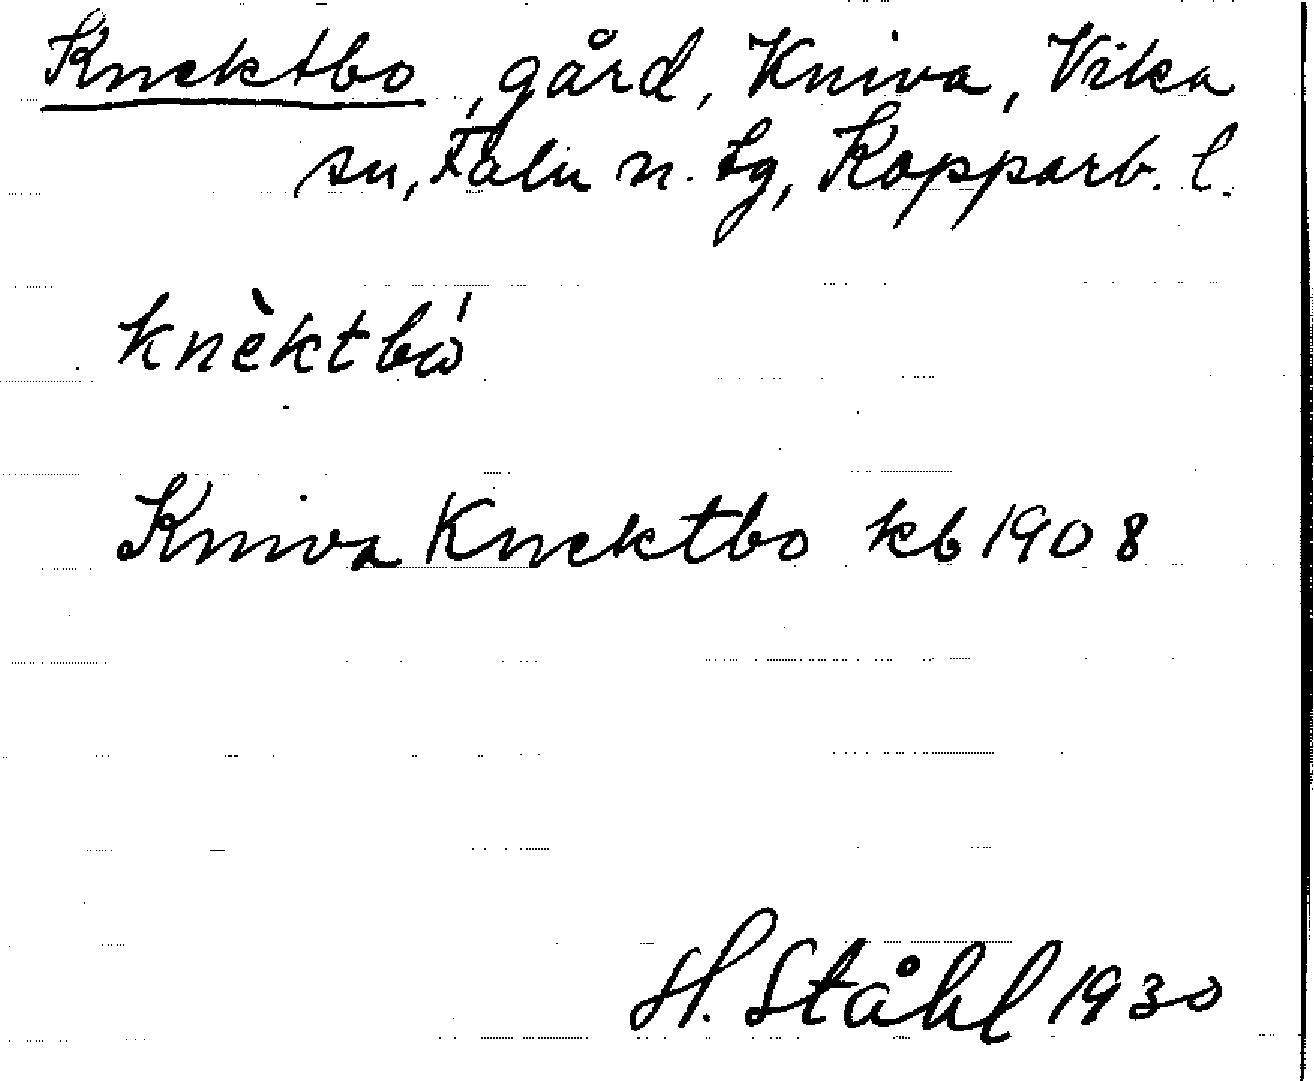 Knektbo, gård, Kniva, Vika
sn, Falu n. tg, Kopparb. l.
knèktbó
Kniva Knektbo kb 1908
H. Ståhl 1930